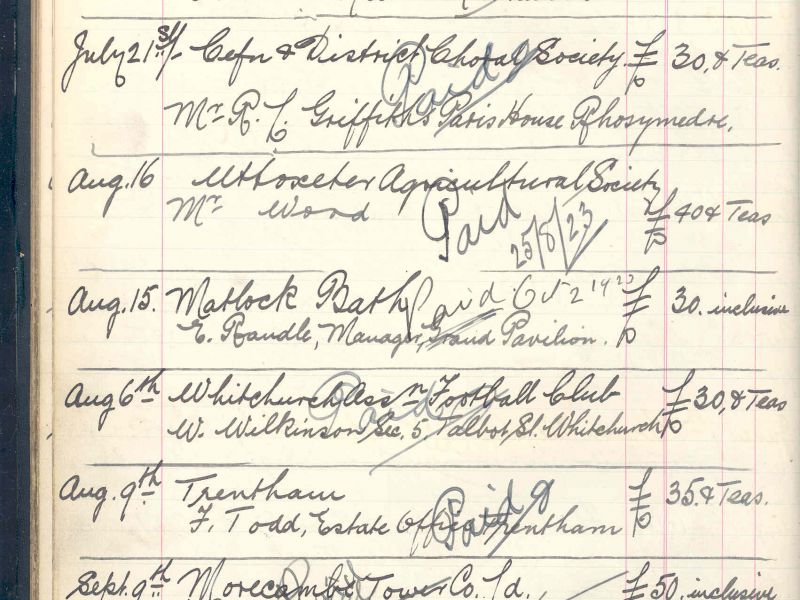 July 21st/- Cefn & District Choral Society. £ 30, & Teas.
Paid
Mr R. C. Griffiths Paris House Rhosymedre.
Aug. 16 Uttoxeter Agricultural Society
Mr Wood £ 40 & Teas
Paid 25/8/23
Aug. 15. Matlock Bath Paid Oct 2 1923 £ 30. inclusive
E. Randle, Manager, Grand Pavilion.
Aug 6th Whitchurch Assn Football Club £ 30, & Teas
Paid
W. Wilkinson, Sec. 5, Talbot St. Whitchurch
Aug. 9th Trentham £ 35. & Teas.
F. Todd, Estate Office Trentham
Paid
Sept. 9th Morecambe Tower Co. Ld. £ 50. inclusive
Paid